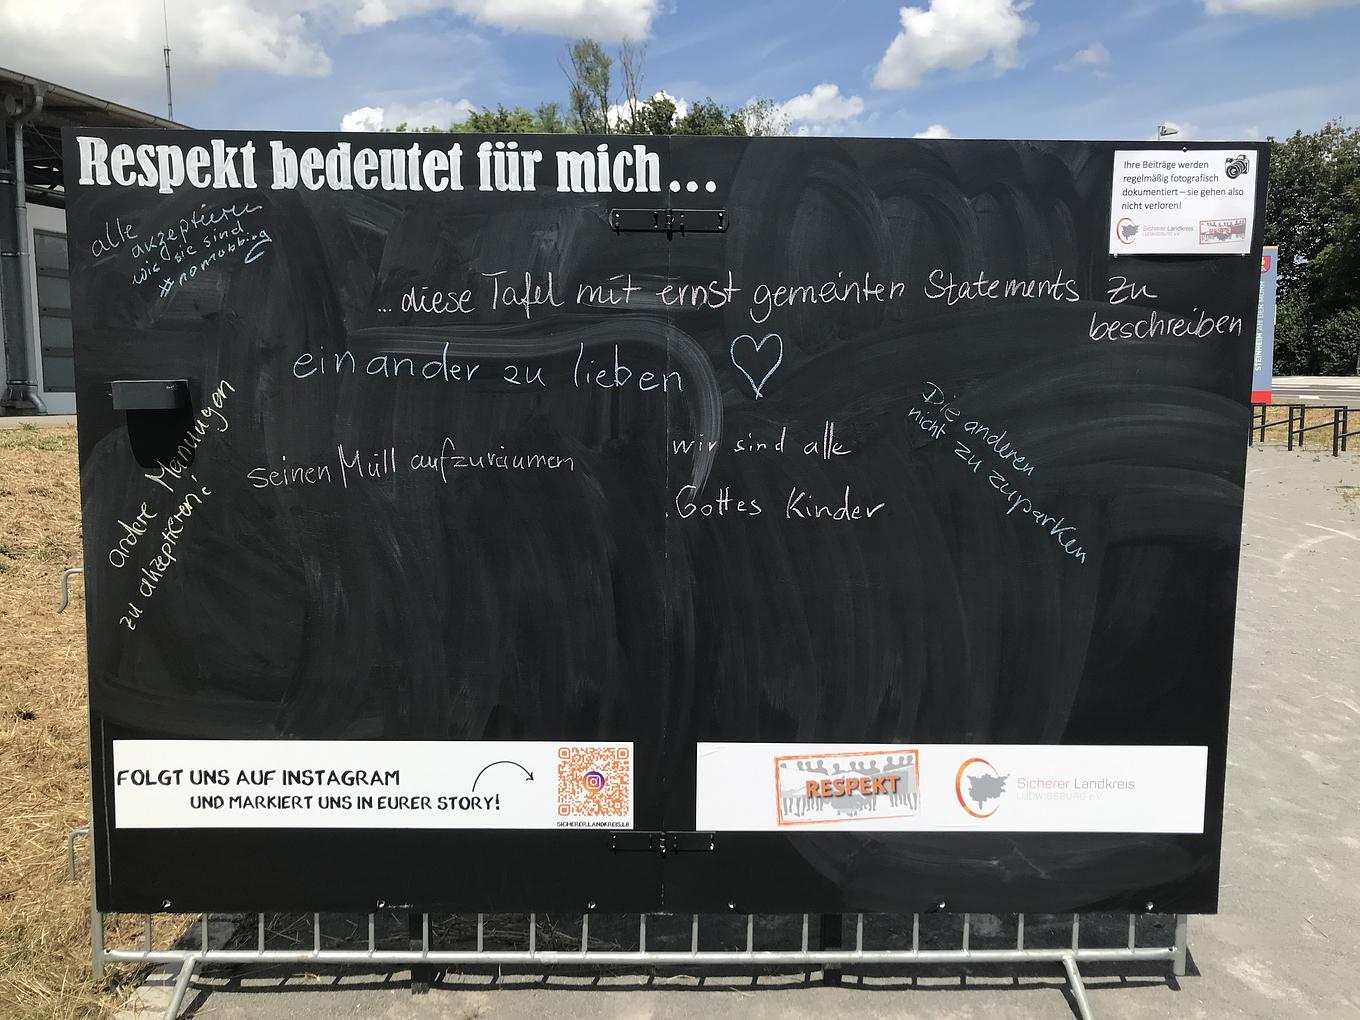 Respekt bedeutet für mich...
Ihre Beiträge werden
regelmäßig fotografisch
dokumentiert – sie gehen also
nicht verloren!
Sicherer Landkreis
LUDWIGSBURG e.V.
RESPEKT
alle
akzeptieren
wie sie sind
#nomobbing
...diese Tafel mit ernst gemeinten Statements zu
beschreiben
einander zu lieben
andere Meinungen
zu akzeptieren!
seinen Müll aufzuräumen
wir sind alle
Gottes Kinder
Die anderen
nicht zu zuparken
STEINHEIM AN DER MURR
FOLGT UNS AUF INSTAGRAM
UND MARKIERT UNS IN EURER STORY!
SICHERER.LANDKREIS.LB
RESPEKT
Sicherer Landkreis
LUDWIGSBURG e.V.